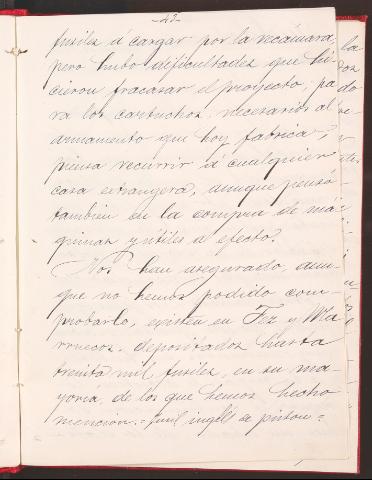 -42-
fusiles á cargar por la recámara
pero hubo dificultades que hi-
cieron fracasar el proyecto, pa
ra los cartuchos, necesarios al
armamento que hoy fabrica
piensa recurrir á cualquier
casa estrangera, aunque pensó
tambien en la compra de má
quinas y útiles al efecto.
Nos han asegurado, aun-
que no hemos podido com-
probarlo, existen en Fez y Ma
rruecos, depositados hasta
treinta mil fusiles, en su ma-
yoria, de los que hemos hecho
mencion.= fusil inglés de piston=